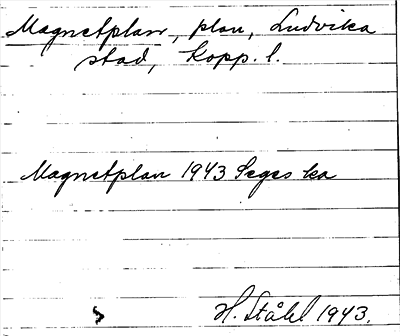 Magnetplan, plan, Ludvika
stad, Kopp. l.
Magnetplan 1943 Seges ka
H. Ståhl 1943.